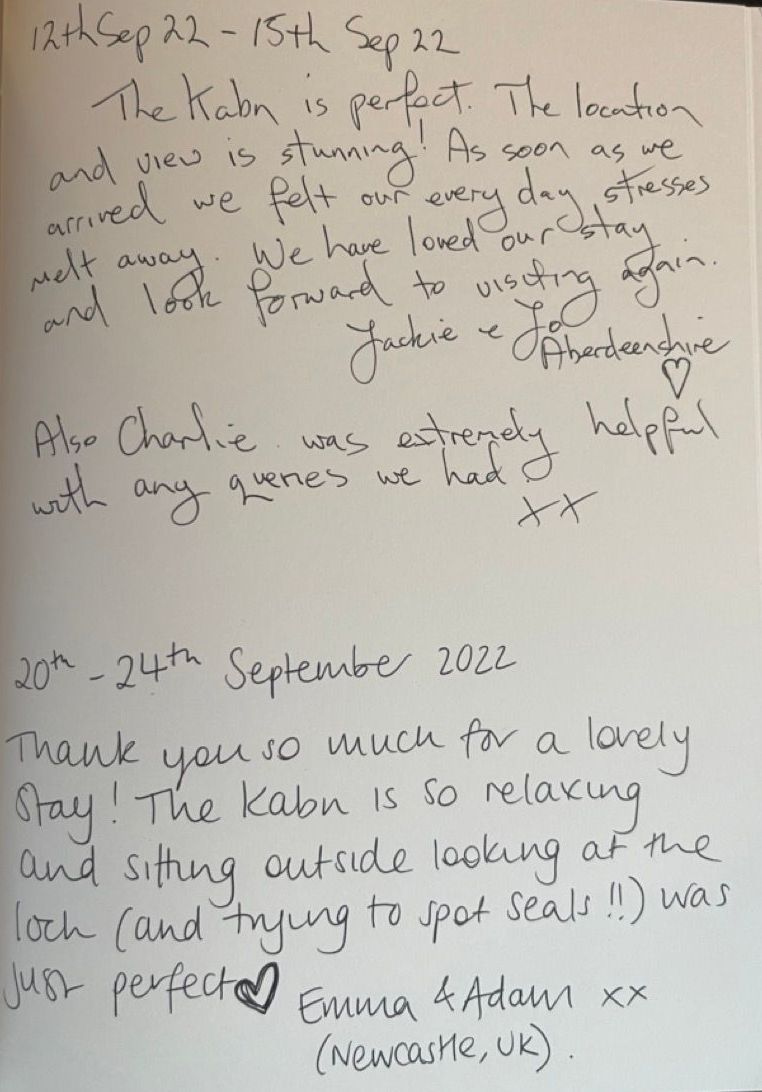 12th Sep 22 - 15th Sep 22
The Kabn is perfect. The location
and view is stunning! As soon as we
arrived we felt our every day stresses
melt away. We have loved our stay
and look forward to visiting again.
Jackie & Jo
Aberdeenshire
♡
Also Charlie was extremely helpful
with any queries we had.
xx
20th - 24th September 2022
Thank you so much for a lovely
stay! The Kabn is so relaxing
and sitting outside looking at the
loch (and trying to spot seals!!) was
just perfect♡ Emma & Adam xx
(Newcastle, UK).